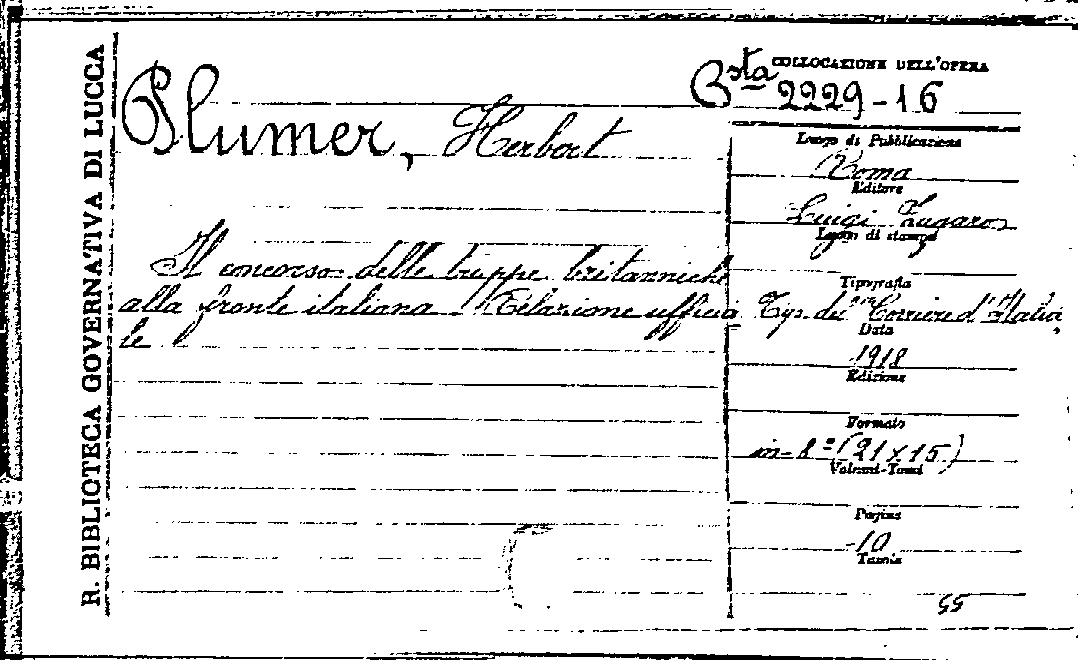 R. BIBLIOTECA GOVERNATIVA DI LUCCA
Plumer, Herbert
Il concorso delle truppe britanniche
alla fronte italiana. Relazione ufficia
le
COLLOCAZIONE DELL'OPERA
Bsta 2229-16
Luogo di Pubblicazione
Roma
Editore
Luigi
Luogo di stampa
Tipografia
Tip. del "Corriere d'Italia"
Data
1918
Edizione
Formato
in-8º (21x15)
Volumi-Tomi
Pagine
10
Tavole